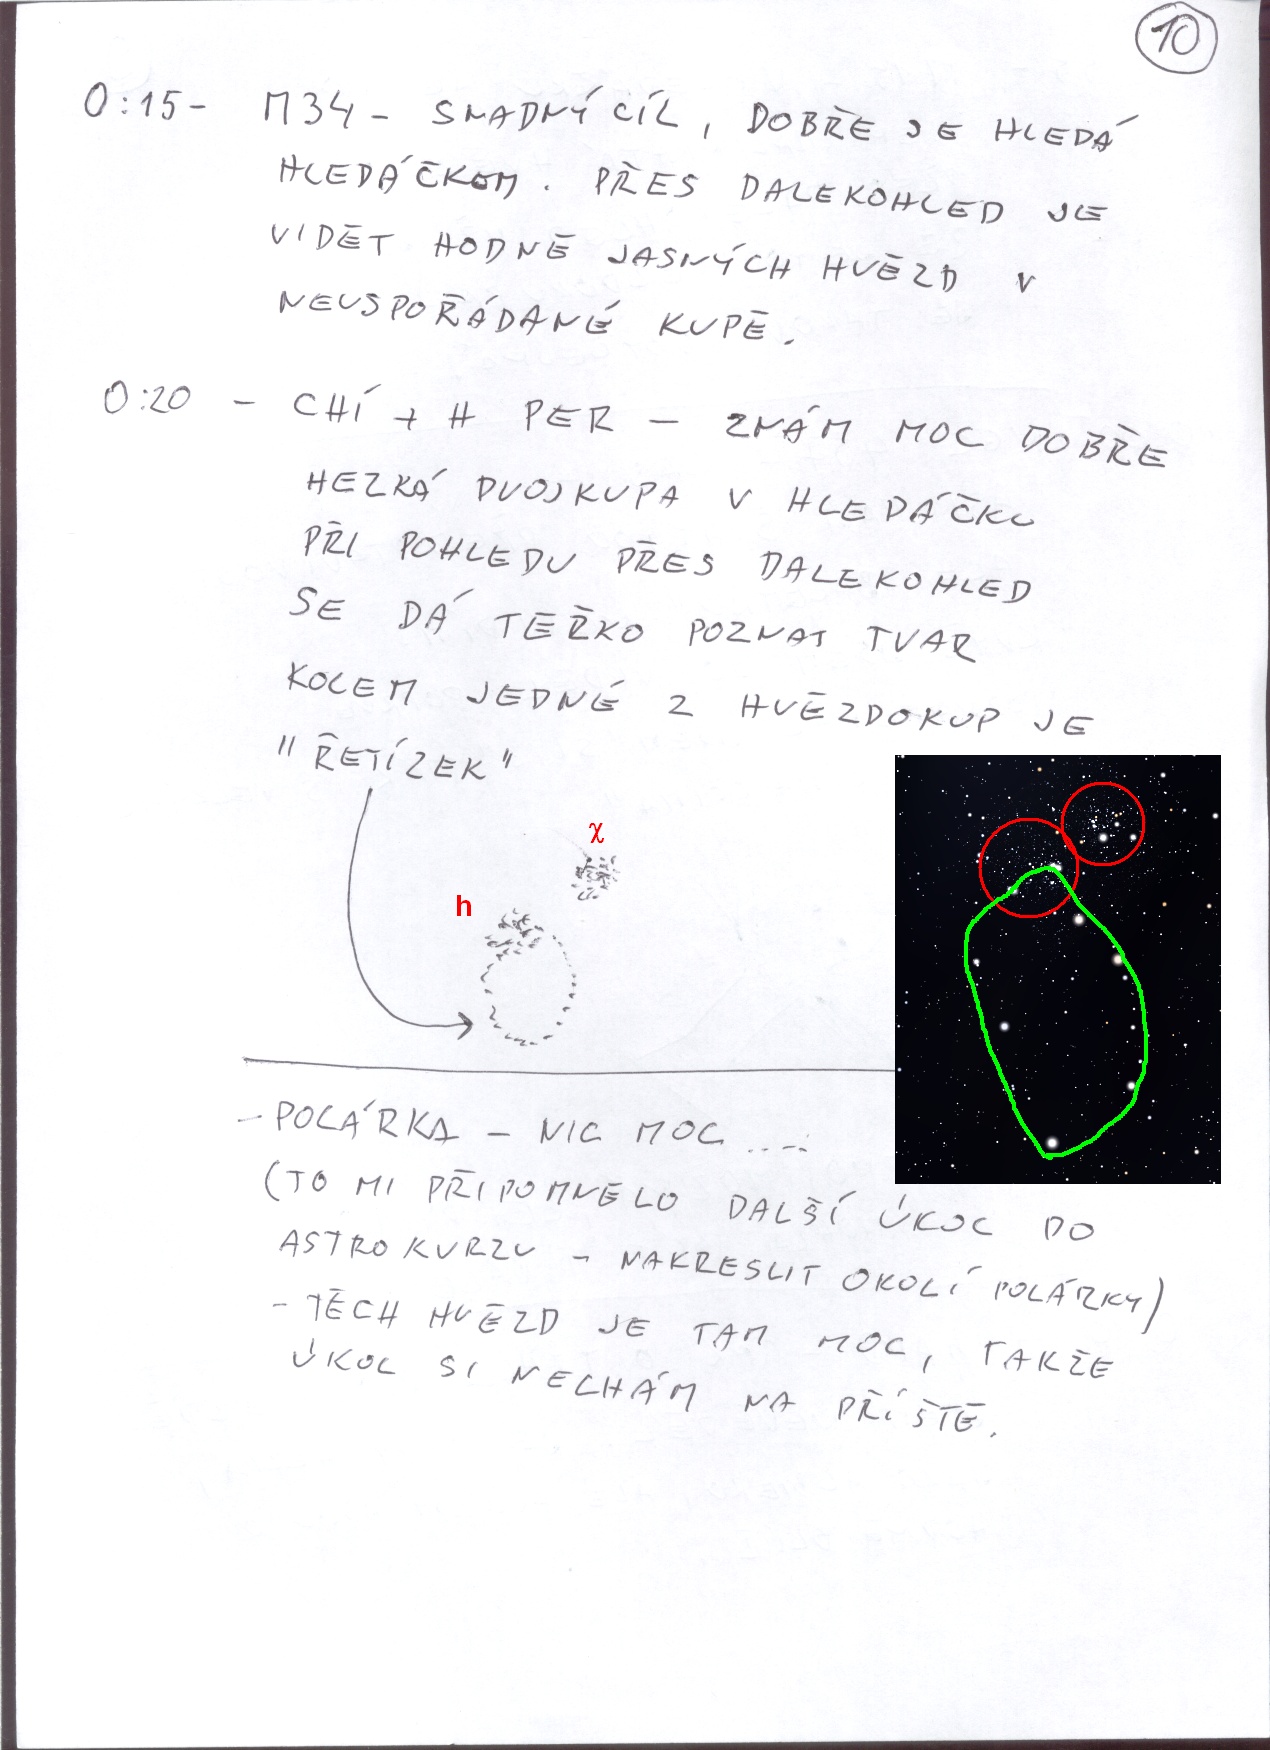 10
0:15 - M34 - SNADNÝ CÍL, DOBŘE SE HLEDÁ
HLEDÁČKEM. PŘES DALEKOHLED JE
VIDĚT HODNĚ JASNÝCH HVĚZD V
NEUSPOŘÁDANÉ KUPĚ.
0:20 - CHÍ + H PER - ZNÁM MOC DOBŘE
HEZKÁ DVOJKUPA V HLEDÁČKU
PŘI POHLEDU PŘES DALEKOHLED
SE DÁ TĚŽKO POZNAT TVAR
KOLEM JEDNÉ Z HVĚZDOKUP JE
"ŘETÍZEK"
χ
h
- POLÁRKA - NIC MOC ....
(TO MI PŘIPOMNĚLO DALŠÍ ÚKOL DO
ASTROKURZU - NAKRESLIT OKOLÍ POLÁRKY)
- TĚCH HVĚZD JE TAM MOC, TAKŽE
ÚKOL SI NECHÁM NA PŘÍŠTĚ.